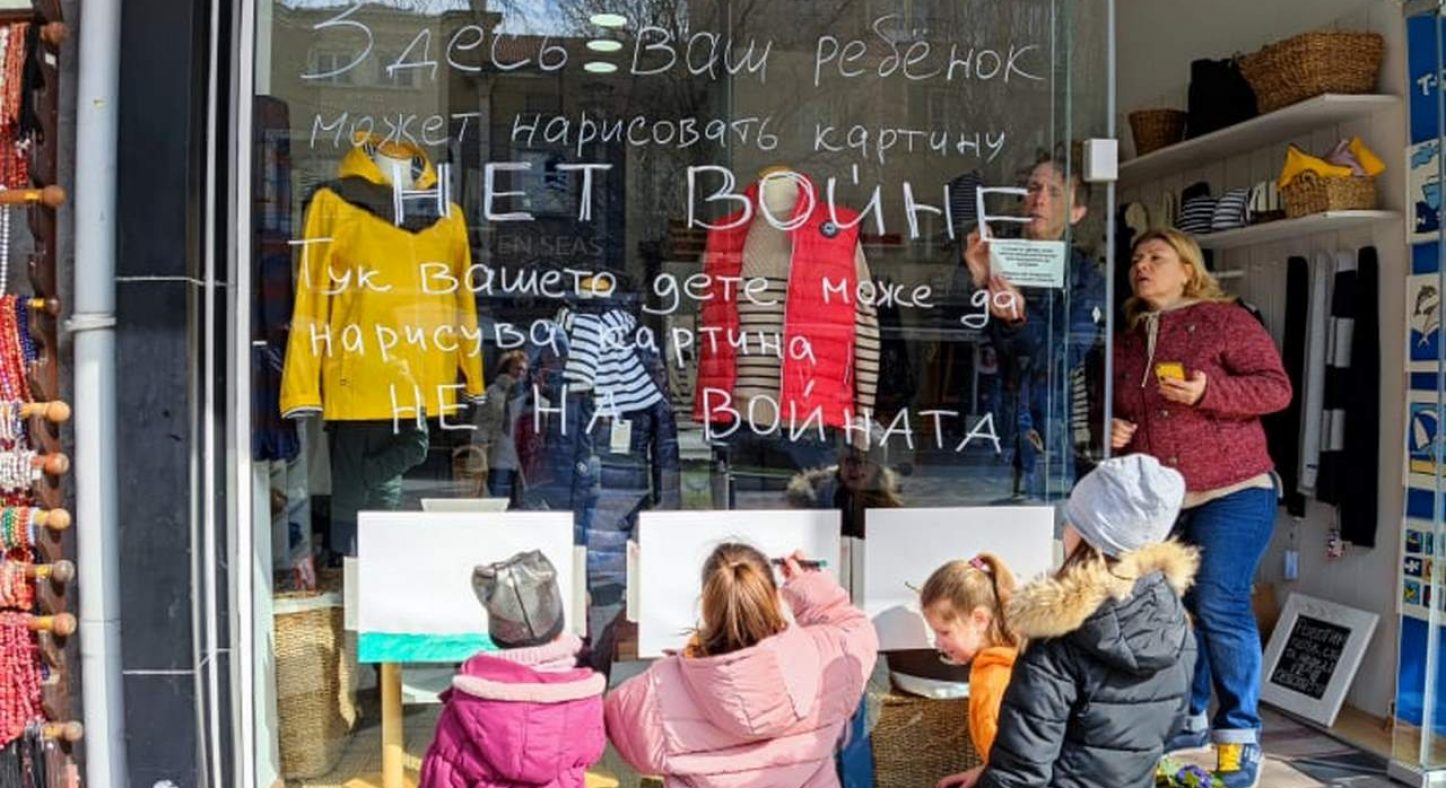 Здесь ваш ребёнок
может нарисовать картину
НЕТ ВОЙНЕ
EN SEAS
Тук вашето дете може да
нарисува картина
НЕ НА ВОЙНАТА